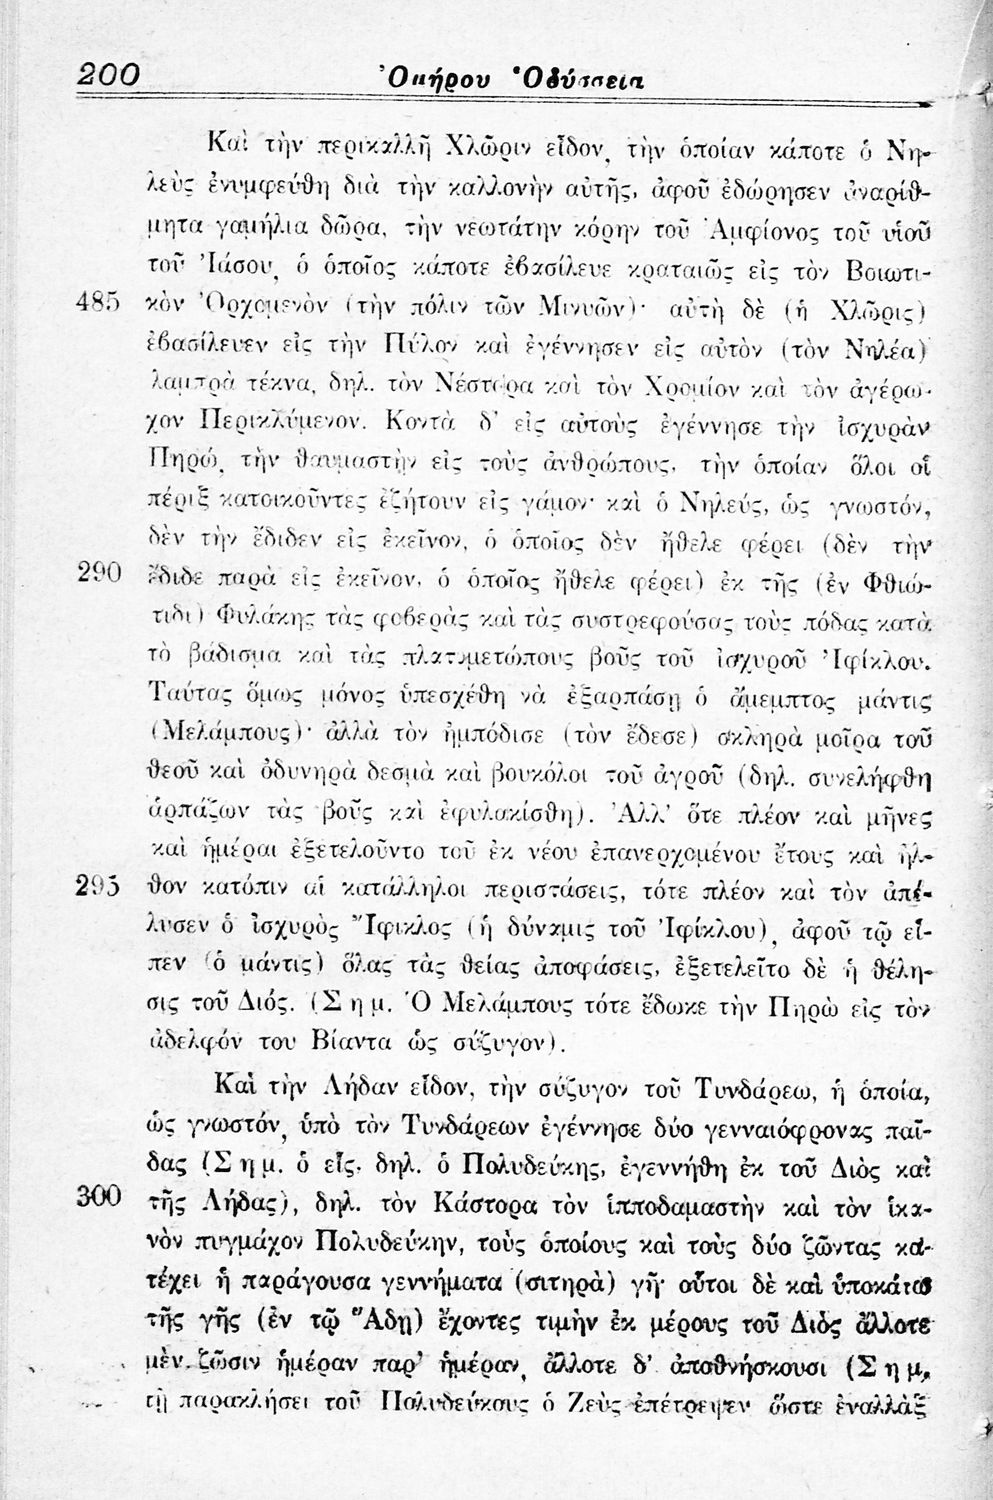 200 Ὁμήρου Ὀδύσσεια
Καὶ τὴν περικαλλῆ Χλῶριν εἶδον, τὴν ὁποίαν κάποτε ὁ Νη-
λεὺς ἐνυμφεύθη διὰ τὴν καλλονὴν αὐτῆς, ἀφοῦ ἐδώρησεν ἀναρίθ-
μητα γαμήλια δῶρα, τὴν νεωτάτην κόρην τοῦ Ἀμφίονος τοῦ υἱοῦ
τοῦ Ἰάσου, ὁ ὁποῖος κάποτε ἐβασίλευε κραταιῶς εἰς τὸν Βοιωτι-
485 κὸν Ὀρχομενὸν (τὴν πόλιν τῶν Μινυῶν)· αὐτὴ δὲ (ἡ Χλῶρις)
ἐβασίλευεν εἰς τὴν Πύλον καὶ ἐγέννησεν εἰς αὐτὸν (τὸν Νηλέα)
λαμπρὰ τέκνα, δηλ. τὸν Νέστορα καὶ τὸν Χρομίον καὶ τὸν ἀγέρω-
χον Περικλύμενον. Κοντὰ δ' εἰς αὐτοὺς ἐγέννησε τὴν ἰσχυρὰν
Πηρώ, τὴν θαυμαστὴν εἰς τοὺς ἀνθρώπους, τὴν ὁποίαν ὅλοι οἱ
πέριξ κατοικοῦντες ἐζήτουν εἰς γάμον· καὶ ὁ Νηλεύς, ὡς γνωστόν,
δὲν τὴν ἔδιδεν εἰς ἐκεῖνον, ὁ ὁποῖος δὲν ἤθελε φέρει (δὲν τὴν
290 ἔδιδε παρὰ εἰς ἐκεῖνον, ὁ ὁποῖος ἤθελε φέρει) ἐκ τῆς (ἐν Φθιώ-
τιδι) Φυλάκης τὰς φοβερὰς καὶ τὰς συστρεφούσας τοὺς πόδας κατὰ
τὸ βάδισμα καὶ τὰς πλατυμετώπους βοῦς τοῦ ἰσχυροῦ Ἰφίκλου.
Ταύτας ὅμως μόνος ὑπεσχέθη νὰ ἐξαρπάσῃ ὁ ἄμεμπτος μάντις
(Μελάμπους)· ἀλλὰ τὸν ἠμπόδισε (τὸν ἔδεσε) σκληρὰ μοῖρα τοῦ
θεοῦ καὶ ὀδυνηρὰ δεσμὰ καὶ βουκόλοι τοῦ ἀγροῦ (δηλ. συνελήφθη
ἁρπάζων τὰς βοῦς καὶ ἐφυλακίσθη). Ἀλλ' ὅτε πλέον καὶ μῆνες
καὶ ἡμέραι ἐξετελοῦντο τοῦ ἐκ νέου ἐπανερχομένου ἔτους καὶ ἦλ-
295 θον κατόπιν αἱ κατάλληλοι περιστάσεις, τότε πλέον καὶ τὸν ἀπέ-
λυσεν ὁ ἰσχυρὸς Ἴφικλος (ἡ δύναμις τοῦ Ἰφίκλου), ἀφοῦ τῷ εἶ-
πεν (ὁ μάντις) ὅλας τὰς θείας ἀποφάσεις, ἐξετελεῖτο δὲ ἡ θέλη-
σις τοῦ Διός. (Σημ. Ὁ Μελάμπους τότε ἔδωκε τὴν Πηρὼ εἰς τὸν
ἀδελφόν του Βίαντα ὡς σύζυγον).
Καὶ τὴν Λήδαν εἶδον, τὴν σύζυγον τοῦ Τυνδάρεω, ἡ ὁποία,
ὡς γνωστόν, ὑπὸ τὸν Τυνδάρεων ἐγέννησε δύο γενναιόφρονας παῖ-
δας (Σημ. ὁ εἷς, δηλ. ὁ Πολυδεύκης, ἐγεννήθη ἐκ τοῦ Διὸς καὶ
300 τῆς Λήδας), δηλ. τὸν Κάστορα τὸν ἱπποδαμαστὴν καὶ τὸν ἱκα-
νὸν πυγμάχον Πολυδεύκην, τοὺς ὁποίους καὶ τοὺς δύο ζῶντας κα-
τέχει ἡ παράγουσα γεννήματα (σιτηρὰ) γῆ· οὗτοι δὲ καὶ ὑποκάτω
τῆς γῆς (ἐν τῷ Ἅδῃ) ἔχοντες τιμὴν ἐκ μέρους τοῦ Διὸς ἄλλοτε
μὲν ζῶσιν ἡμέραν παρ' ἡμέραν, ἄλλοτε δ' ἀποθνήσκουσι (Σημ.
τῇ παρακλήσει τοῦ Πολυδεύκους ὁ Ζεὺς ἐπέτρεψεν ὥστε ἐναλλὰξ